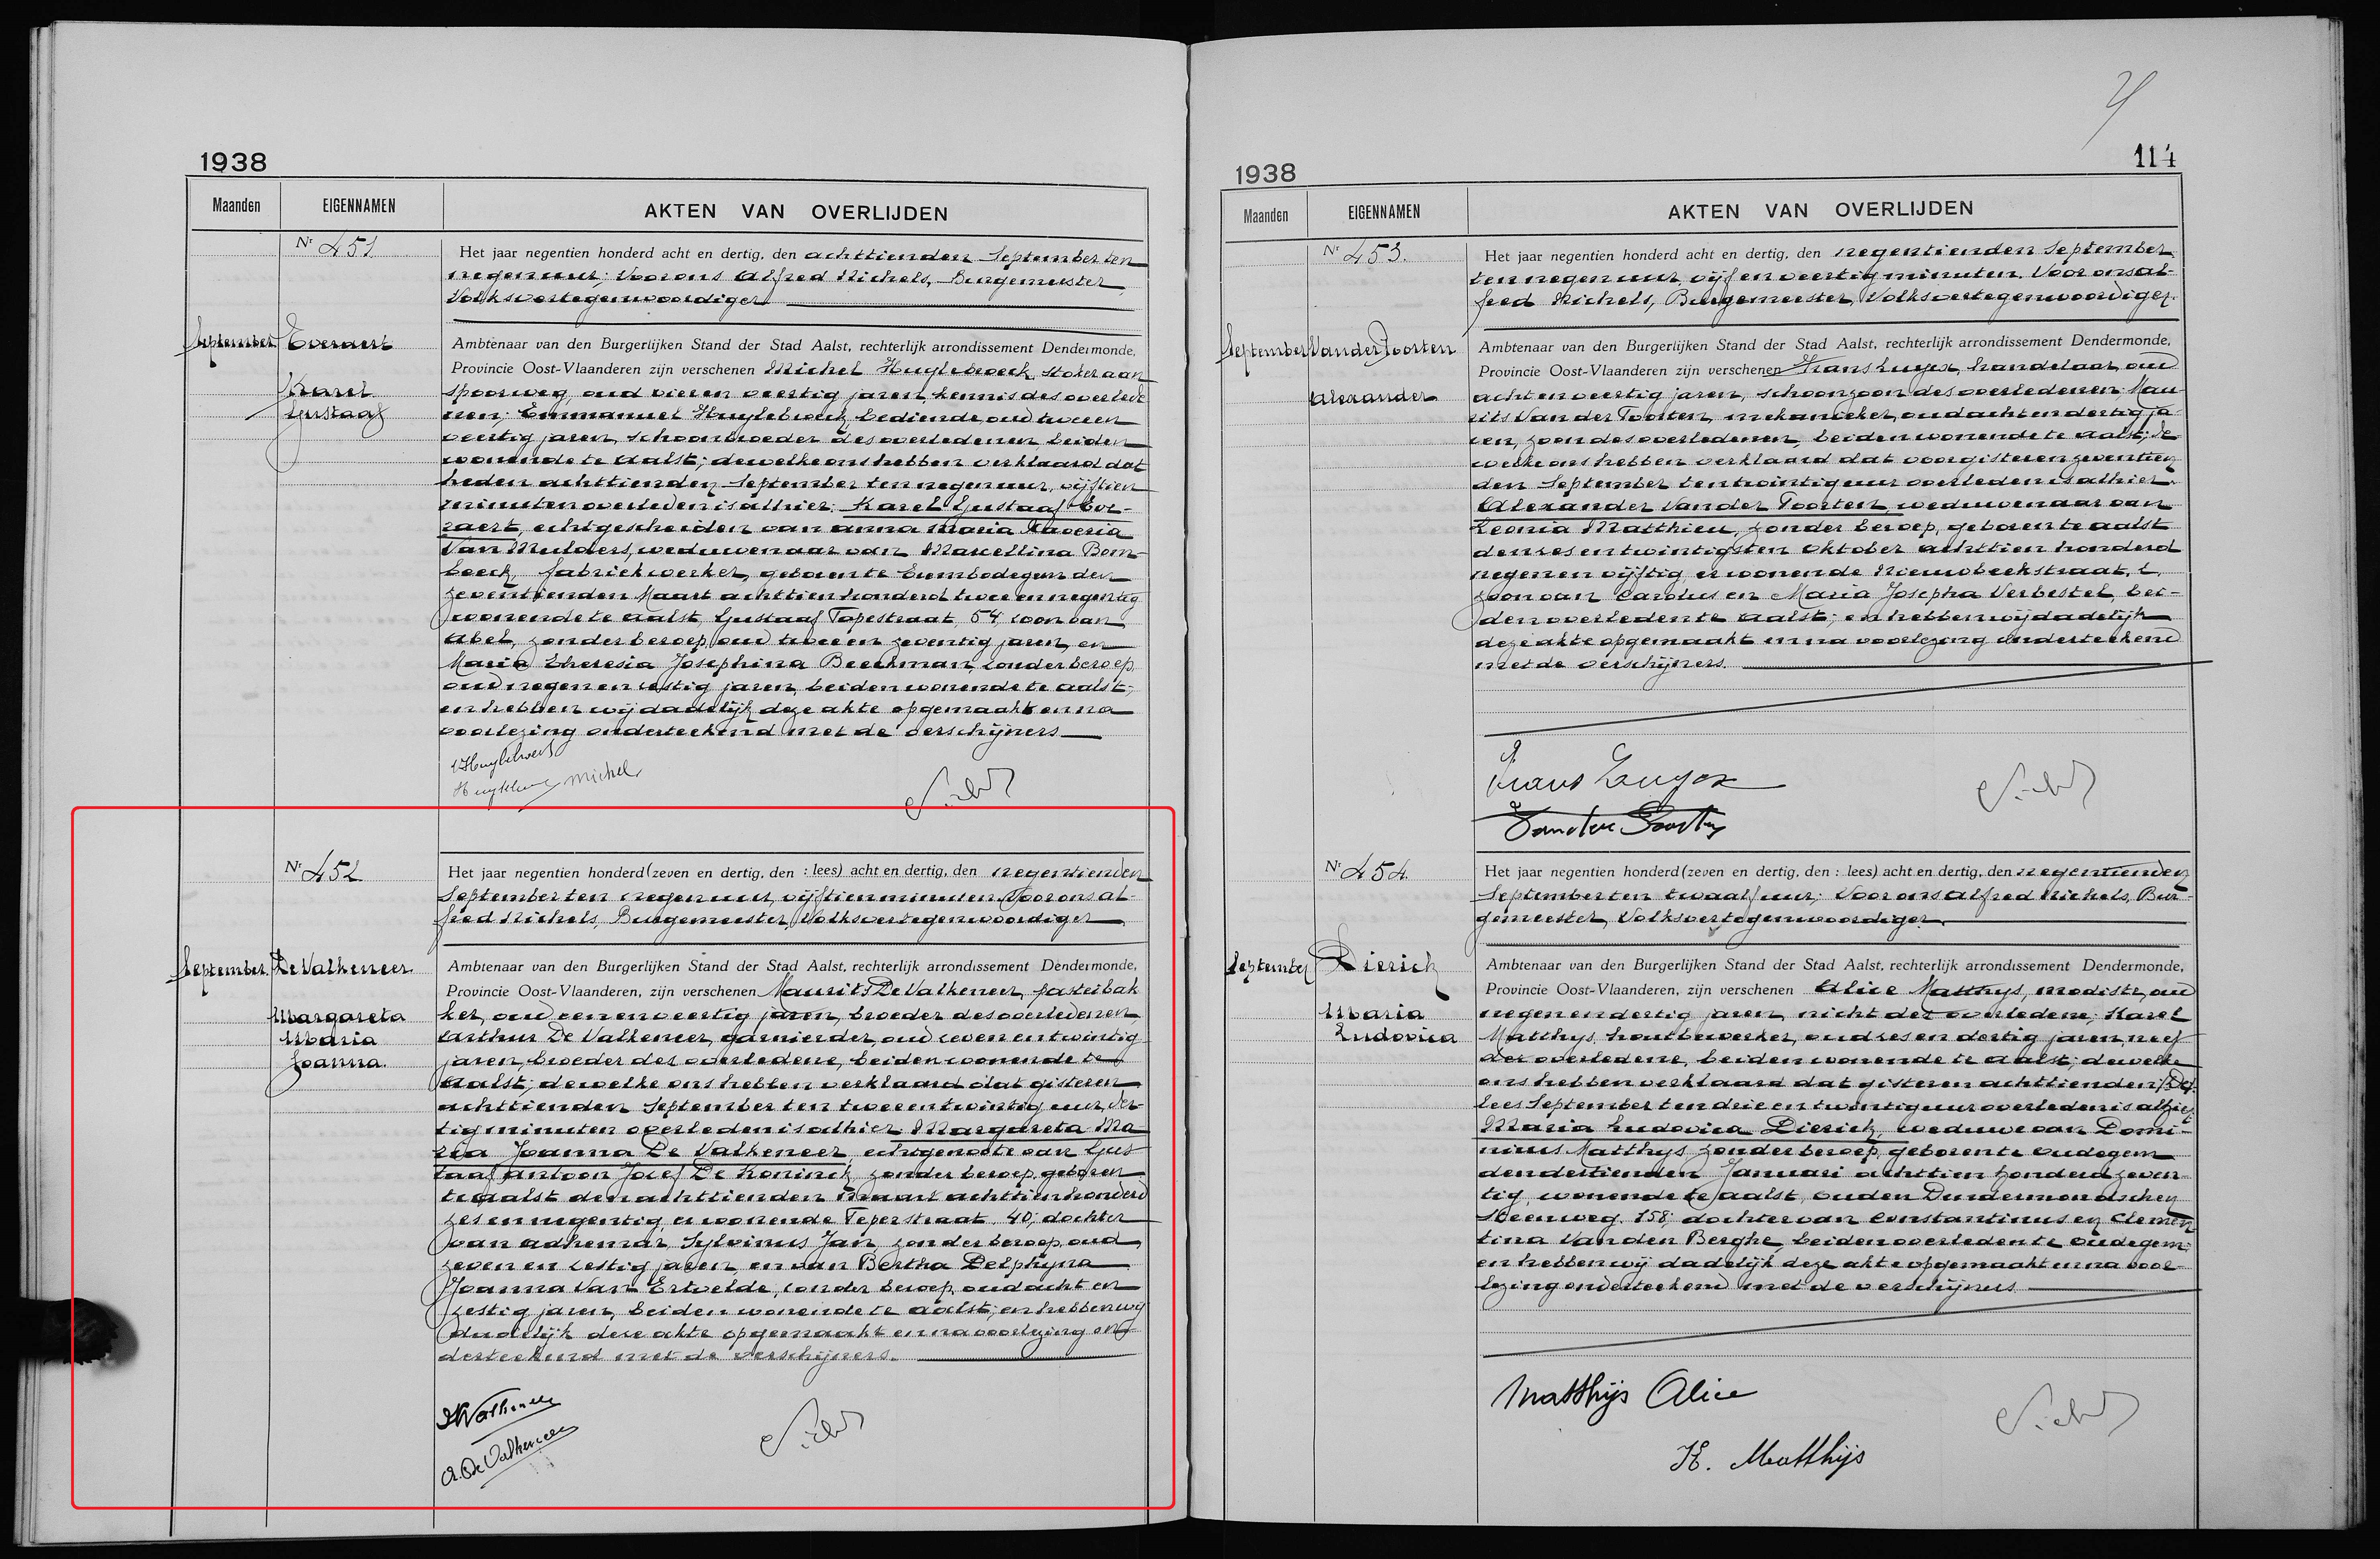 1938
Maanden EIGENNAMEN AKTEN VAN OVERLIJDEN
Nr 451
Het jaar negentien honderd acht en dertig, den achttienden September ten
negen uur; Voor ons Alfred Nichels, Burgemeester
Volksvertegenwoordiger
September Everaert
Karel
Gustaaf
Ambtenaar van den Burgerlijken Stand der Stad Aalst, rechterlijk arrondissement Dendermonde,
Provincie Oost-Vlaanderen zijn verschenen Michel Huylebroeck, stoker aan
spoorweg, oud vier en veertig jaren, kennis des overlede
nen; Emmanuel Huylebroeck, bediende, oud twee en
veertig jaren, schoonbroeder des overledenen, beiden
wonende te Aalst; dewelke ons hebben verklaard dat
heden achttienden September ten negen uur, vijftien
minuten overleden is alhier: Karel Gustaaf Eve-
raert, echtgescheiden van Anna Maria Xaveria
Van Mulders, weduwenaar van Marcellina Bom-
beeck, fabriekwerker, geboren te Erembodegem den
zeventienden Maart achttien honderd twee en negentig
wonende te Aalst, Gustaaf Papestraat, 54 zoon van
Abel, zonder beroep, oud twee en zeventig jaren, en
Maria Theresia Josephina Beeckman, zonder beroep
oud negen en zestig jaren, beiden wonende te Aalst;
en hebben wij dadelijk deze akte opgemaakt en na
voorlezing onderteekend met de verschijners
Huylebroeck Michel
Nr 452
Het jaar negentien honderd (zeven en dertig, den : lees) acht en dertig, den negentienden
September ten negen uur, vijftien minuten Voor ons Al-
fred Nichels, Burgemeester, Volksvertegenwoordiger
September De Valkeneer
Margareta
Maria
Joanna.
Ambtenaar van den Burgerlijken Stand der Stad Aalst, rechterlijk arrondissement Dendermonde,
Provincie Oost-Vlaanderen, zijn verschenen Maurits De Valkeneer, pasteibak
ker, oud een en veertig jaren, broeder des overledenen,
Arthur De Valkeneer, garnierder, oud zeven en twintig
jaren, broeder der overledene, beiden wonende te
Aalst; dewelke ons hebben verklaard dat gisteren
achttienden September ten twee en twintig uur, der-
tig minuten overleden is alhier Margareta Ma
ria Joanna De Valkeneer, echtgenoote van Gus
taaf Antoon Jozef De Koninck, zonder beroep, geboren
te Aalst den achttienden Maart achttien honderd
zes en negentig, er wonende Peperstraat, 40; dochter
van Adhemar, Sylvinus Jan, zonder beroep, oud
zeven en zestig jaren, en van Bertha Delphyna
Joanna Van Ertvelde, zonder beroep, oud acht en
zestig jaren, beiden wonende te Aalst; en hebben wij
dadelijk deze akte opgemaakt en na voorlezing on
derteekend met de verschijners.
A. De Valkeneer
114
1938
Maanden EIGENNAMEN AKTEN VAN OVERLIJDEN
Nr 453.
Het jaar negentien honderd acht en dertig, den negentienden September
ten negen uur, vijf en veertig minuten. Voor ons Al-
fred Nichels, Burgemeester, Volksvertegenwoordiger.
September Van der Poorten
Alexander
Ambtenaar van den Burgerlijken Stand der Stad Aalst, rechterlijk arrondissement Dendermonde,
Provincie Oost-Vlaanderen zijn verschenen Frans Luyex, handelaar, oud
acht en veertig jaren, schoonzoon des overledenen; Mau
rits Van der Poorten, mekanieker, oud acht en dertig ja
ren, zoon des overledenen, beiden wonende te Aalst; de
welke ons hebben verklaard dat voorgisteren zeventien
den September ten twintig uur overleden is alhier.
Alexander Van der Poorten, weduwenaar van
Leonia Matthieu, zonder beroep, geboren te Aalst
den zes en twintigsten Oktober achttien honderd
negen en vijftig er wonende Nieuwbeekstraat, 2,
zoon van Carolus en Maria Josepha Verbestel, bei-
den overleden te Aalst; en hebben wij dadelijk
deze akte opgemaakt en na voorlezing onderteekend
met de verschijners.
Frans Luyex
Vander Poorten
Nr 454.
Het jaar negentien honderd (zeven en dertig, den : lees) acht en dertig, den negentienden
September ten twaalf uur; Voor ons Alfred Nichels, Bur-
gemeester, Volksvertegenwoordiger
September Dierick
Maria
Ludovica
Ambtenaar van den Burgerlijken Stand der Stad Aalst, rechterlijk arrondissement Dendermonde,
Provincie Oost-Vlaanderen, zijn verschenen Alice Matthys, modiste, oud
negen en dertig jaren, nicht der overledene; Karel
Matthys, houtbewerker, oud zes en dertig jaren, neef
der overledene, beiden wonende te Aalst; dewelke
ons hebben verklaard dat gisteren achttienden
lees September ten drie en twintig uur overleden is alhier
Maria Ludovica Dierick, weduwe van Domi-
nicus Matthys zonder beroep, geboren te Oudegem
den dertienden Januari achttien honderd zeven-
tig, wonende te Aalst, Ouden Dendermondschen
Steenweg, 158; dochter van Constantinus en Clemen
tina Van den Berghe, beiden overleden te Oudegem;
en hebben wij dadelijk deze akte opgemaakt en na voor-
lezing onderteekend met de verschijners
Matthijs Alice
K. Matthijs